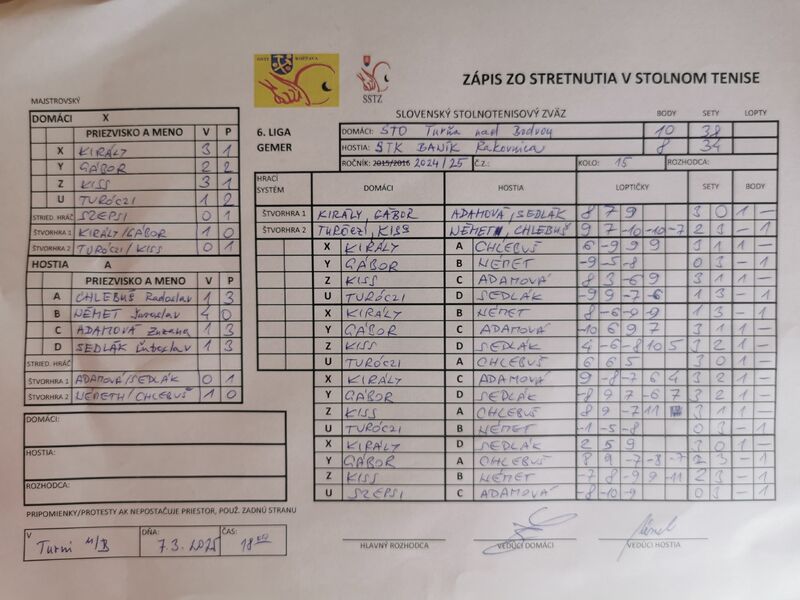 SSTZ
ZÁPIS ZO STRETNUTIA V STOLNOM TENISE
MAJSTROVSKÝ
DOMÁCI X
PRIEZVISKO A MENO V P
X KIRÁLY 3 1
Y GÁBOR 2 2
Z KISS 3 1
U TURÓCZI 1 2
STRIED. HRÁČ SZEPSI 0 1
ŠTVORHRA 1 KIRÁLY/GÁBOR 1 0
ŠTVORHRA 2 TURÓCZI/KISS 0 1
HOSTIA A
PRIEZVISKO A MENO V P
A CHLEBUŠ Radoslav 1 3
B NÉMET Jaroslav 4 0
C ADAMOVÁ Zuzana 1 3
D SEDLÁK Ľuboslav 1 3
STRIED. HRÁČ
ŠTVORHRA 1 ADAMOVÁ/SEDLÁK 0 1
ŠTVORHRA 2 NEMETH/CHLEBUŠ 1 0
DOMÁCI:
HOSTIA:
ROZHODCA:
PRIPOMIENKY/PROTESTY AK NEPOSTAČUJE PRIESTOR, POUŽ. ZADNÚ STRANU
V Turni n/B DŇA: 7.3.2025 ČAS: 18 00
SLOVENSKÝ STOLNOTENISOVÝ ZVÄZ BODY SETY LOPTY
6. LIGA
GEMER
DOMÁCI: STO Turňa nad Bodvou 10 38
HOSTIA: STK BANÍK Rakovnica 8 34
ROČNÍK: 2015/2016 2024/25 Č.Z.: KOLO: 15 ROZHODCA:
HRACÍ SYSTÉM DOMÁCI HOSTIA LOPTIČKY SETY BODY
ŠTVORHRA 1 KIRÁLY, GÁBOR ADAMOVÁ, SEDLÁK 8 7 9 3 0 1 –
ŠTVORHRA 2 TURÓCZI, KISS NÉMETH, CHLEBUŠ 9 7 -10 -10 -7 2 3 – 1
X KIRÁLY A CHLEBUŠ 6 -9 9 9 3 1 1 –
Y GÁBOR B NÉMET -9 -5 -8 0 3 – 1
Z KISS C ADAMOVÁ 8 3 -6 9 3 1 1 –
U TURÓCZI D SEDLÁK -9 9 -7 -6 1 3 – 1
X KIRÁLY B NÉMET 8 -6 -9 -9 1 3 – 1
Y GÁBOR C ADAMOVÁ -10 6 9 7 3 1 1 –
Z KISS D SEDLÁK 4 -6 -8 10 5 3 2 1 –
U TURÓCZI A CHLEBUŠ 6 6 5 3 0 1 –
X KIRÁLY C ADAMOVÁ 9 -8 -7 6 4 3 2 1 –
Y GÁBOR D SEDLÁK -8 9 7 -6 7 3 2 1 –
Z KISS A CHLEBUŠ 8 9 -7 11 3 1 1 –
U TURÓCZI B NÉMET -1 -5 -8 0 3 – 1
X KIRÁLY D SEDLÁK 2 5 9 3 0 1 –
Y GÁBOR A CHLEBUŠ 8 9 -7 -3 -7 2 3 – 1
Z KISS B NÉMET -7 8 -9 9 -11 2 3 – 1
U SZEPSI C ADAMOVÁ -8 -10 -9 0 3 – 1
HLAVNÝ ROZHODCA VEDÚCI DOMÁCI VEDÚCI HOSTIA